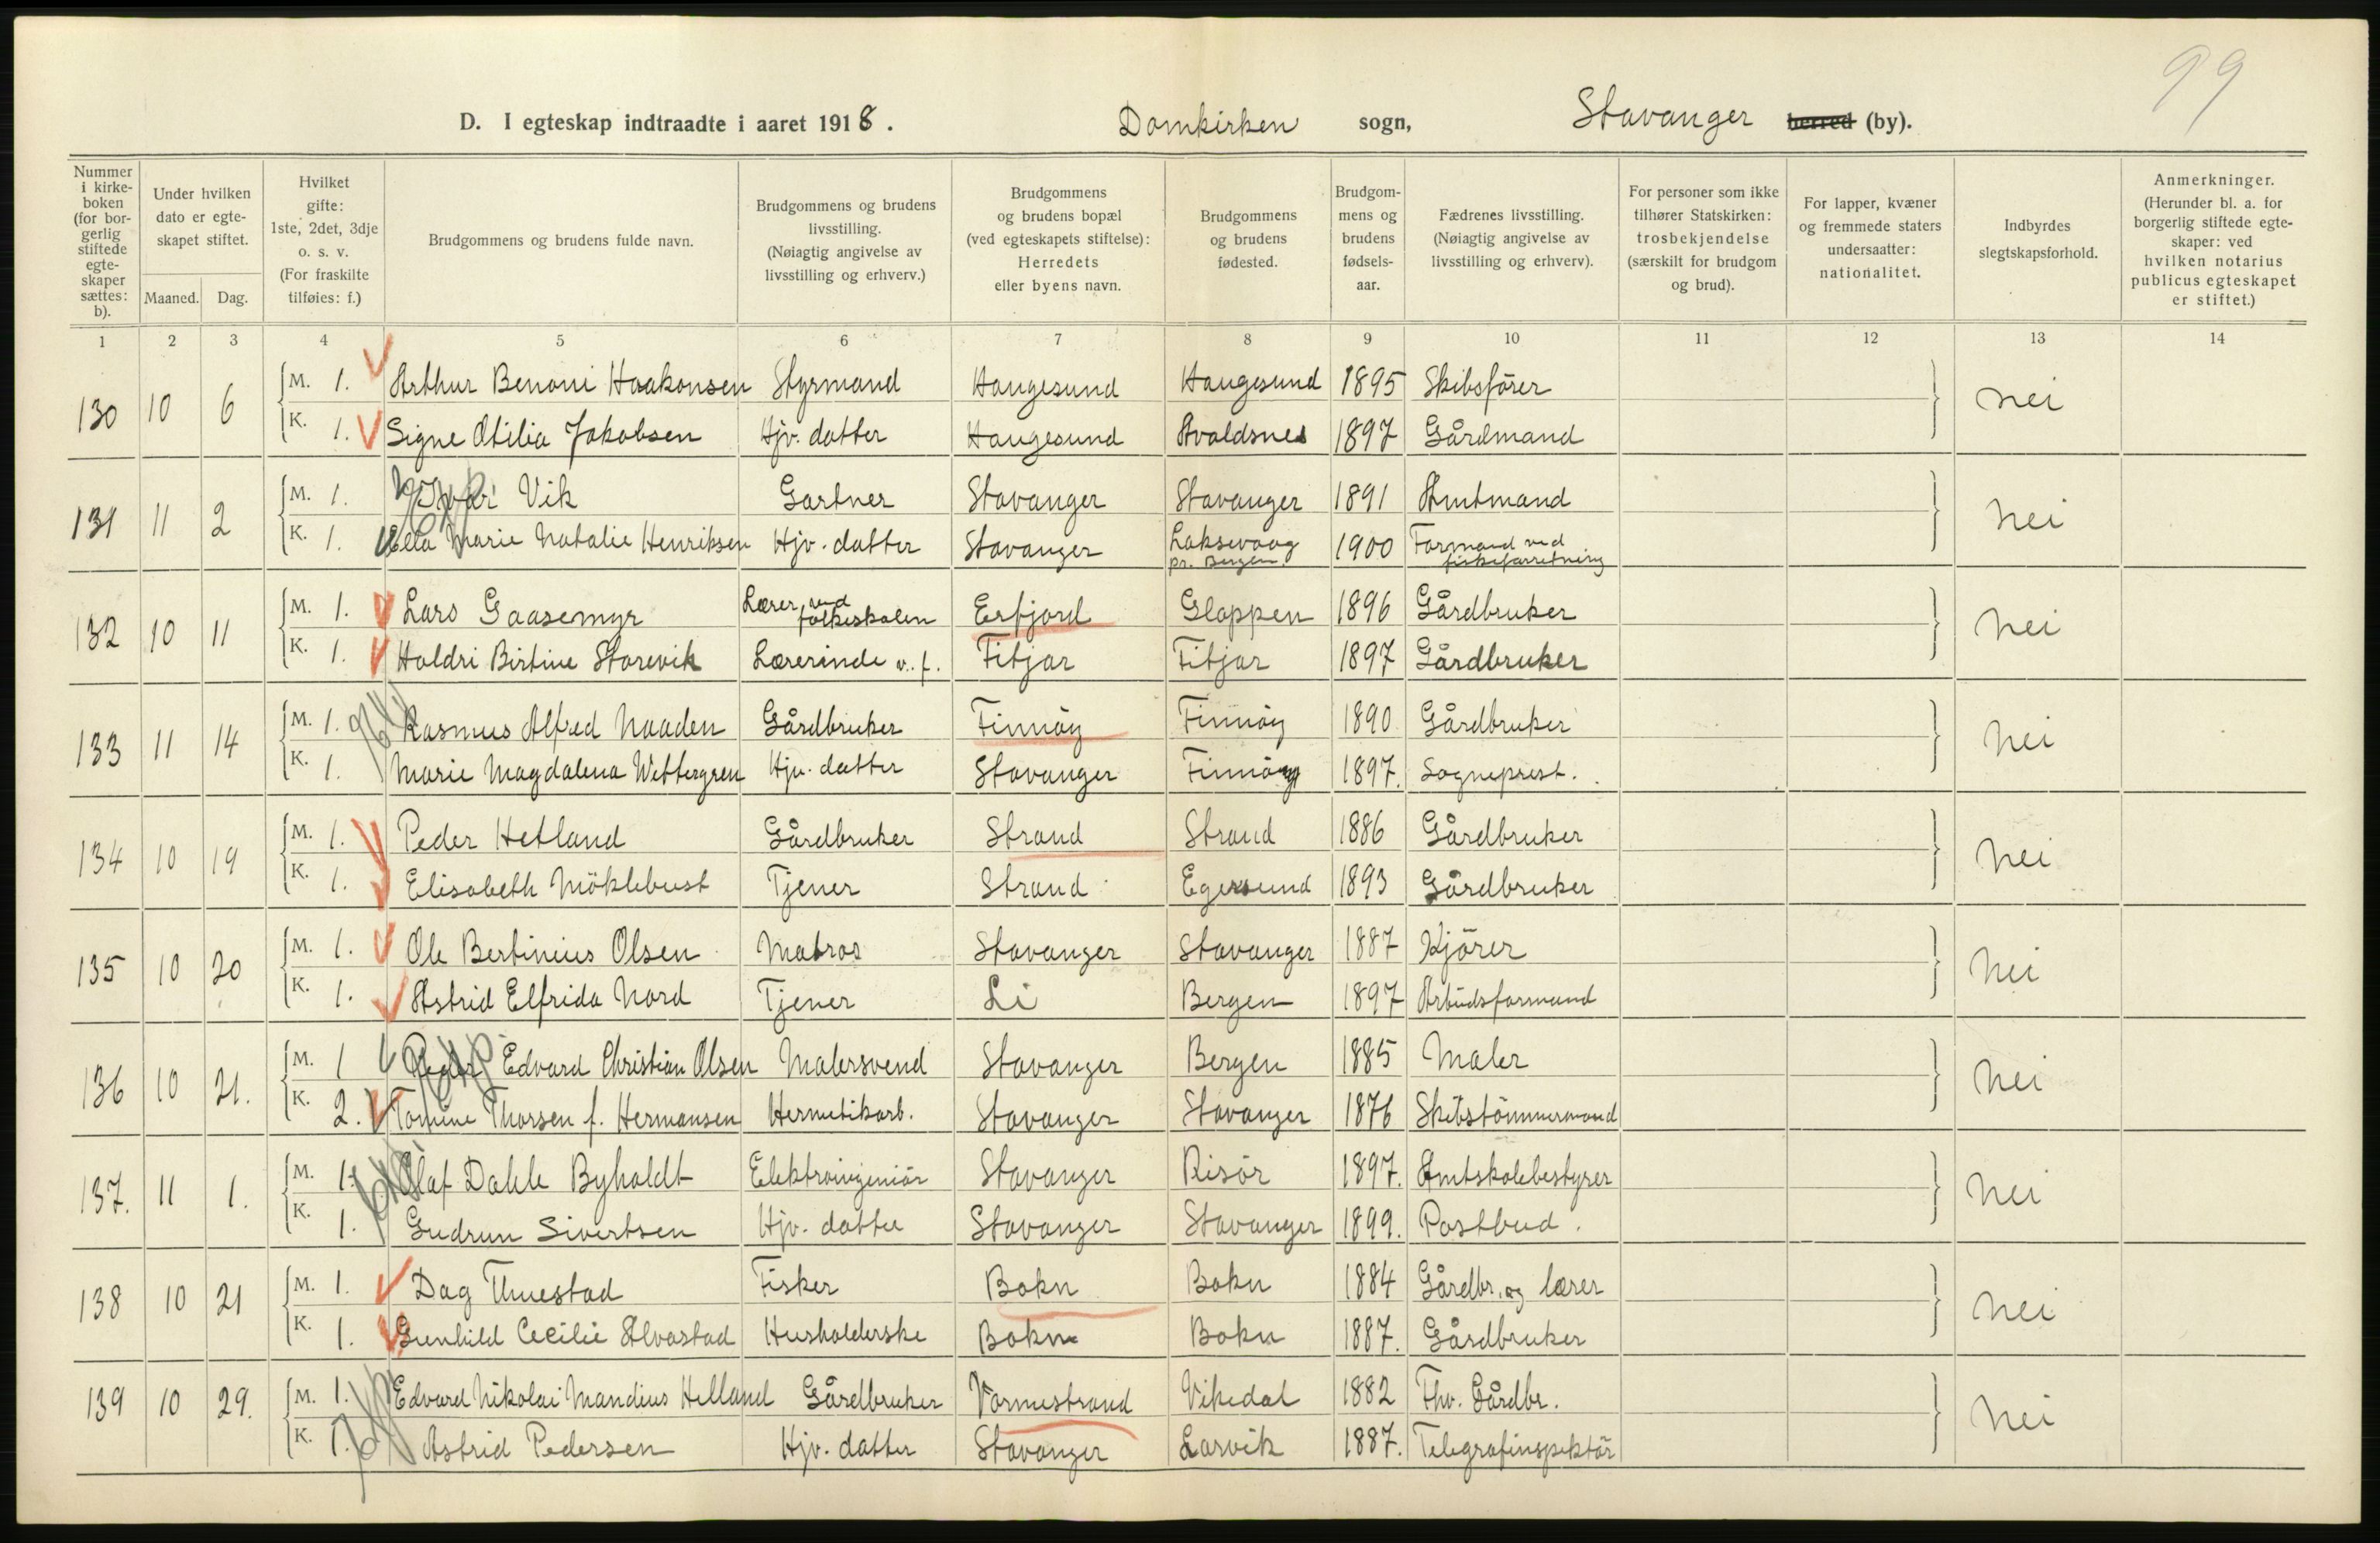 99
D. I egteskap indtraadte i aaret 1918. Domkirken sogn, Stavanger herred (by).
Nummer i kirkeboken (for borgerlig stiftede egteskaper sættes: b).
Under hvilken dato er egteskapet stiftet.
Maaned. Dag.
Hvilket gifte: 1ste, 2det, 3dje o. s. v. (For fraskilte tilføies: f.)
Brudgommens og brudens fulde navn.
Brudgommens og brudens livsstilling. (Nøiagtig angivelse av livsstilling og erhverv.)
Brudgommens og brudens bopæl (ved egteskapets stiftelse): Herredets eller byens navn.
Brudgommens og brudens fødested.
Brudgommens og brudens fødselsaar.
Fædrenes livsstilling. (Nøiagtig angivelse av livsstilling og erhverv).
For personer som ikke tilhører Statskirken: trosbekjendelse (særskilt for brudgom og brud).
For lapper, kvæner og fremmede staters undersaatter: nationalitet.
Indbyrdes slegtskapsforhold.
Anmerkninger. (Herunder bl. a. for borgerlig stiftede egteskaper: ved hvilken notarius publicus egteskapet er stiftet.)
1 2 3 4 5 6 7 8 9 10 11 12 13 14
130 10 6 M. 1. Arthur Benoni Haakonsen Styrmand Haugesund Haugesund 1895 Skibsfører nei
K. 1. Signe Otilia Jakobsen Hjv. datter Haugesund Avaldsnes 1897 Gårdmand
131 11 2 M. 1. Vik Gartner Stavanger Stavanger 1891 Amtmand nei
K. 1. Ella Marie Natalie Henriksen Hjv. datter Stavanger Laksevaag pr. Bergen 1900 Formand ved fiskeforretning
132 10 11 M. 1. Lars Gaasemyr Lærer ved folkeskolen Erfjord Gloppen 1896 Gårdbruker nei
K. 1. Haldri Birtine Storevik Lærerinde v. f. Fitjar Fitjar 1897 Gårdbruker
133 11 14 M. 1. Rasmus Alfred Naaden Gårdbruker Finnöy Finnöy 1890 Gårdbruker nei
K. 1. Marie Magdalena Wettergren Hjv. datter Stavanger Finnöy 1897. Sogneprest.
134 10 19 M. 1. Peder Hetland Gårdbruker Strand Strand 1886 Gårdbruker nei
K. 1. Elisabeth Möklebust Tjener Strand Egersund 1893 Gårdbruker
135 10 20 M. 1. Ole Bertinius Olsen Matros Stavanger Stavanger 1887 Kjörer nei
K. 1. Astrid Elfrida Nord Tjener Li Bergen 1897 Arbeidsformand
136 10 21. M. 1 Edvard Christian Olsen Malersvend Stavanger Bergen 1885 Maler nei
K. 2. Tomine Thorsen f. Hermansen Hermetikarb. Stavanger Stavanger 1876 Skibstömmermand
137. 11 1. M. 1. Olaf Dahle Byholdt Elektroingeniör Stavanger Risör 1897. Amtskolebestyrer nei
K. 1. Gudrun Sivertsen Hjv. datter Stavanger Stavanger 1899. Postbud.
138 10 21 M. 1. Dag Thuestad Fisker Bokn Bokn 1884 Gårdbr. og lærer nei
K. 1. Gunhild Cecilie Alvastad Husholderske Bokn Bokn 1887. Gårdbruker
139 10 29. M. 1. Edvard Nikolai Mandius Helland Gårdbruker Vormestrand Vikedal 1882 Fhv. Gårdbr. nei
K. 1. Astrid Pedersen Hjv. datter Stavanger Larvik 1887. Telegrafinspektör